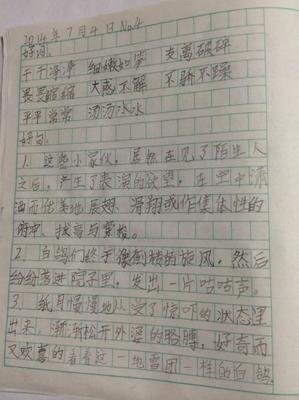 2014年7月4日 No.4
好词:
干干净净 细嫩如笋 支离破碎
畏畏缩缩 大惑不解 不骄不躁
平平常常 汤汤水水
好句:
1. 这些小家伙, 居然在见了陌生人
之后, 产生了表演的欲望, 在空中潇
洒而优美地展翅、滑翔或作集体性的
俯冲、拔高与盘旋。
2. 白鸽们终于像倒转的旋风, 然后
纷纷落进院子里, 发出一片咕咕声。
3. 纸月慢慢地从受了惊吓的状态里
出来, 渐渐松开外婆的胳膊, 好奇而
又欢喜的看看这一地雪团一样的白鸽。